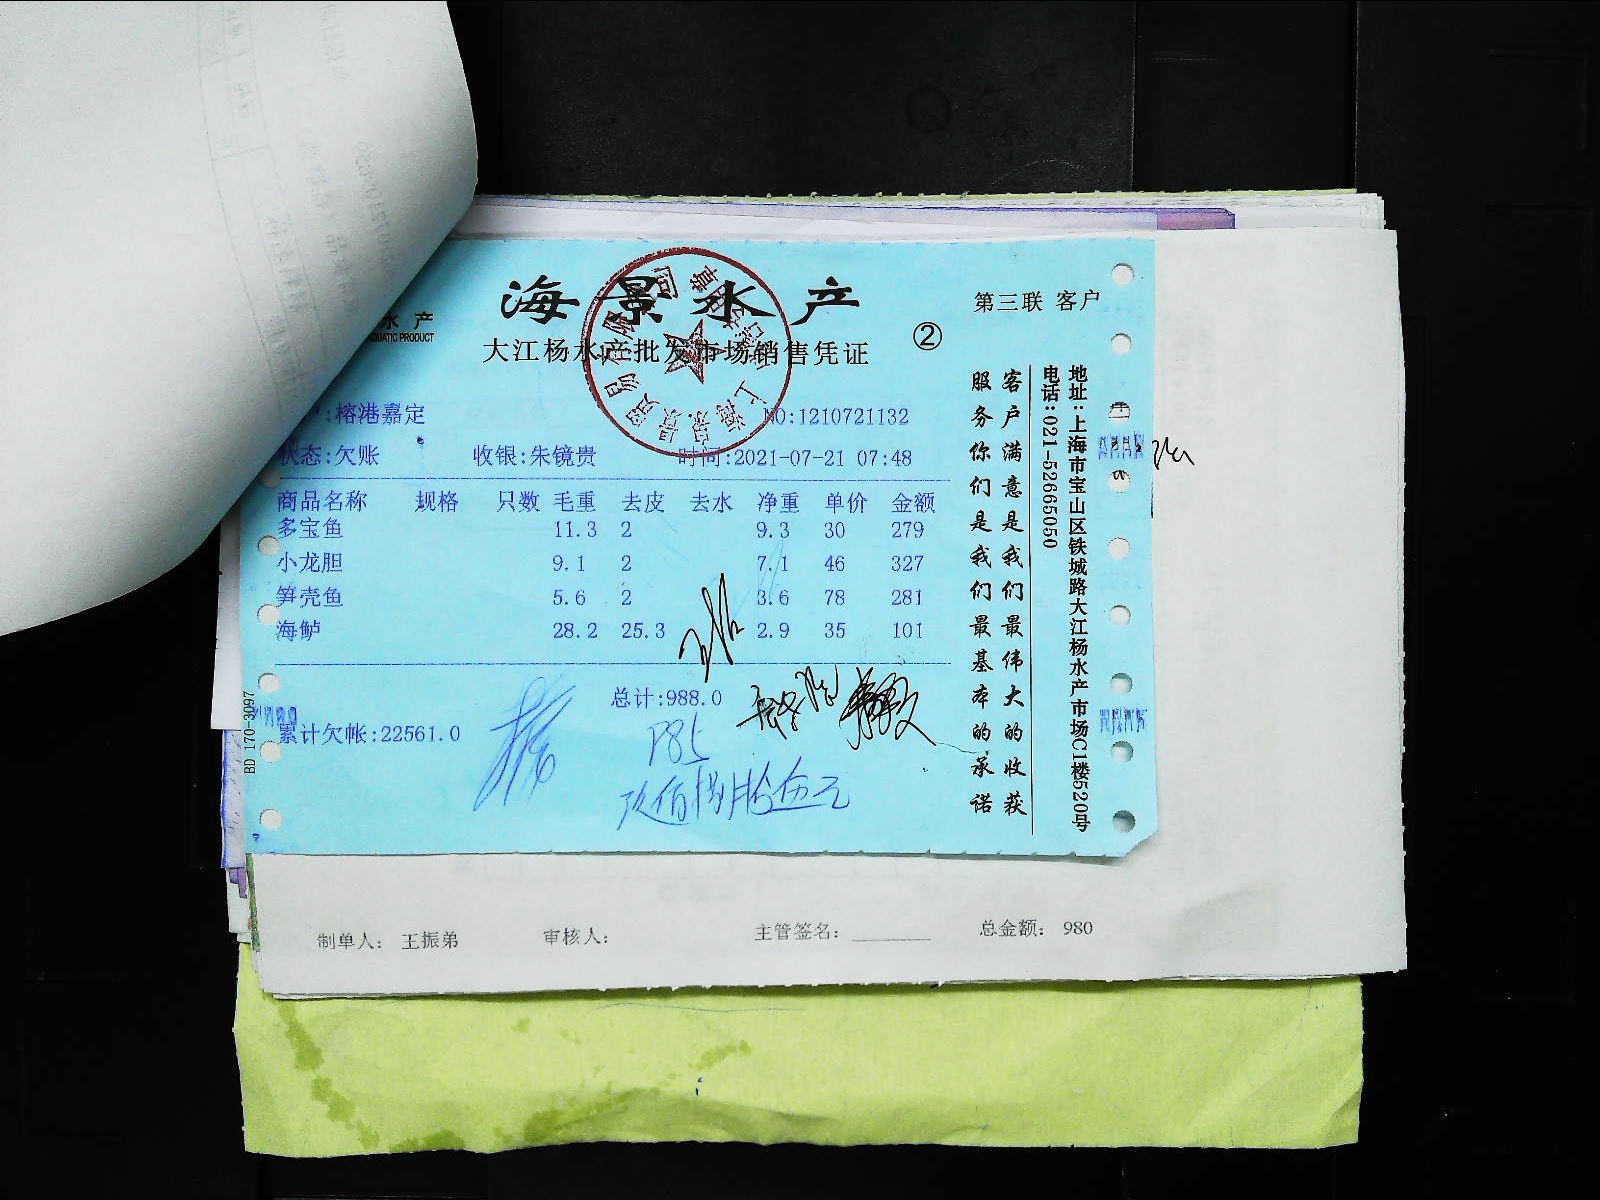 海景水产
第三联 客户
水产
AQUATIC PRODUCT
大江杨水产批发市场销售凭证
②
:榕港嘉定
NO:1210721132
状态:欠账 收银:朱镜贵 时间:2021-07-21 07:48
商品名称 规格 只数 毛重 去皮 去水 净重 单价 金额
多宝鱼 11.3 2 9.3 30 279
小龙胆 9.1 2 7.1 46 327
笋壳鱼 5.6 2 3.6 78 281
海鲈 28.2 25.3 2.9 35 101
总计:988.0
累计欠帐:22561.0
985
玖佰捌拾伍元
BD 170-3097
客户满意是我们最伟大的收获
服务你们是我们最基本的承诺
地址:上海市宝山区铁城路大江杨水产市场C1楼520号
电话:021-52665050
制单人: 王振弟 审核人: 主管签名: 总金额: 980